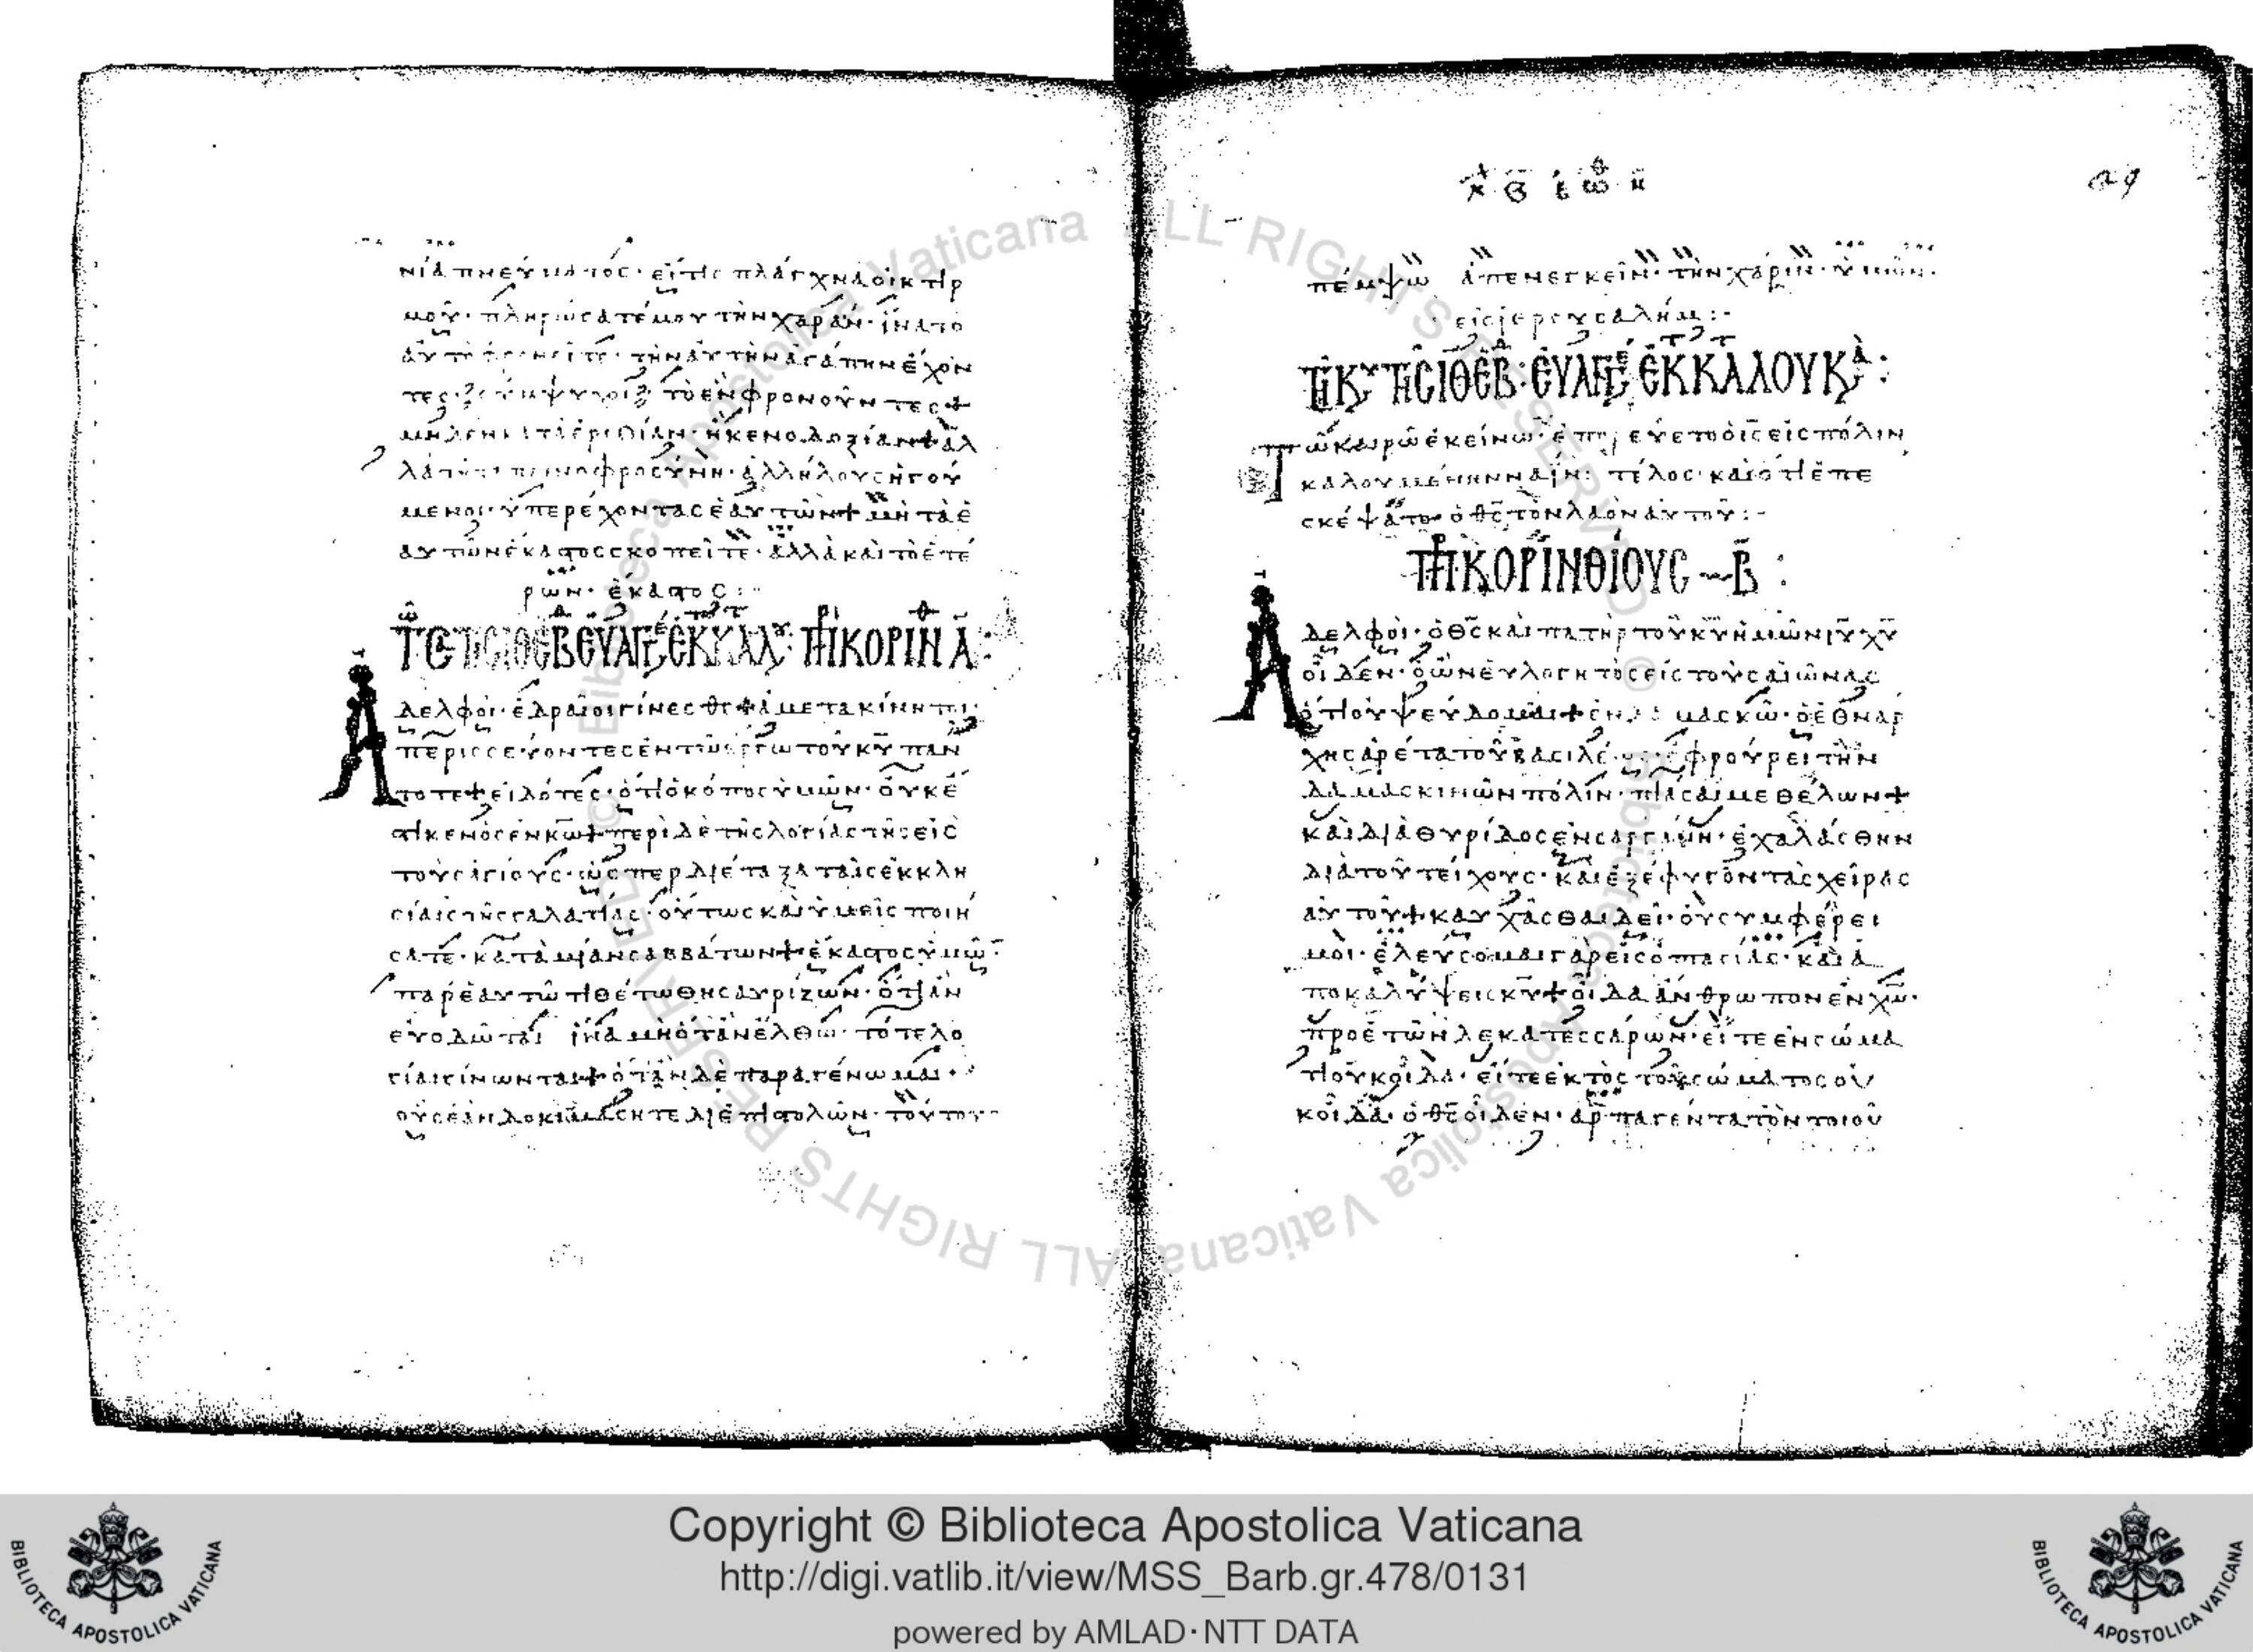 νία πνεύματος· εἴ τις πλάγχνα οἰκτιρ
μοῦ· πληρώσατέ μου τὴν χαράν· ἵνα τὸ
αὐτὸ φρονεῖτε· τὴν αὐτὴν ἀγάπην ἔχον
τες· τὸ ἓν φρονοῦντες +
μηδὲν κατὰ ἐριθίαν· ἢ κενοδοξίαν + ἀλ
λὰ τῇ ταπεινοφροσύνῃ· ἀλλήλους ἡγού
μενοι ὑπερέχοντας ἑαυτῶν + μὴ τὰ ἑ
αυτῶν ἕκαστος σκοπεῖτε· ἀλλὰ καὶ τὸ ἑτέ
ρων· ἕκαστος:
ΚΟΡΙΝ Α:
Ἀδελφοὶ· ἑδραῖοι γίνεσθε + ἀμετακίνητοι·
περισσεύοντες ἐν τῷ ἔργῳ τοῦ κυ παν
τοτε + εἰδότες· ὅτι ὁ κόπος ὑμῶν· οὐκ ἔ
στι κενὸς ἐν κω + περὶ δὲ τῆς λογίας τῆς εἰς
τοὺς ἁγίους· ὥσπερ διέταξα ταῖς ἐκκλη
σίαις τῆς γαλατίας· οὕτως καὶ ὑμεῖς ποιή
σατε· κατὰ μίαν σαββάτων + ἕκαστος ὑμῶ
παρ' ἑαυτῷ τιθέτω θησαυρίζων· ὅτι ἂν
εὐοδῶται ἵνα μὴ ὅταν ἔλθω· τότε λο
γίαι γίνωνται + ὅταν δὲ παραγένωμαι·
οὓς ἐὰν δοκιμάσητε δι' ἐπιστολῶν· τούτου
πέμψω ἀπενεγκεῖν· τὴν χάριν· ὑμῶν·
εἰς ἱερουσαλήμ:
ΕΚ Κ ΛΟΥΚ:
Τῷ καιρῷ ἐκείνω· ἐπορεύετο ὁ ις εἰς πόλιν
καλουμένην ναΐν: τέλος· καὶ ὅτι ἐπε
σκέψατο ὁ θς τὸν λαὸν αὐτοῦ:
ΠΡ ΚΟΡΙΝΘΙΟΥΣ Β:
Ἀδελφοὶ· ὁ θς καὶ πατὴρ τοῦ κυ ἡμῶν ιυ χυ
οἶδεν· ὁ ὢν εὐλογητὸς εἰς τοὺς αἰῶνας
ὅτι οὐ ψεύδομαι + ἐν δαμασκῶ· ὁ ἐθνάρ
χης ἀρέτα τοῦ βασιλέως ἐφρούρει τὴν
δαμασκινῶν πόλιν· πιάσαι με θέλων +
καὶ διὰ θυρίδος ἐν σαργάνη· ἐχαλάσθην
διὰ τοῦ τείχους· καὶ ἐξέφυγον τὰς χεῖρας
αὐτοῦ + καυχᾶσθαι δεῖ· οὐ συμφέρει
μοι· ἐλεύσομαι γὰρ εἰς ὀπτασίας· καὶ ἀ
ποκαλύψεις κυ + οἶδα ἄνθρωπον ἐν χω·
πρὸ ἐτῶν δεκατεσσάρων· εἴτε ἐν σώμα
τι οὐκ οἶδα· εἴτε ἐκτὸς τοῦ σώματος οὐ
κ οἶδα· ὁ θς οἶδεν· ἁρπαγέντα τὸν τοιοῦ
Copyright © Biblioteca Apostolica Vaticana
http://digi.vatlib.it/view/MSS_Barb.gr.478/0131
powered by AMLAD·NTT DATA
BIBLIOTECA APOSTOLICA VATICANA
BIBLIOTECA APOSTOLICA VATICANA